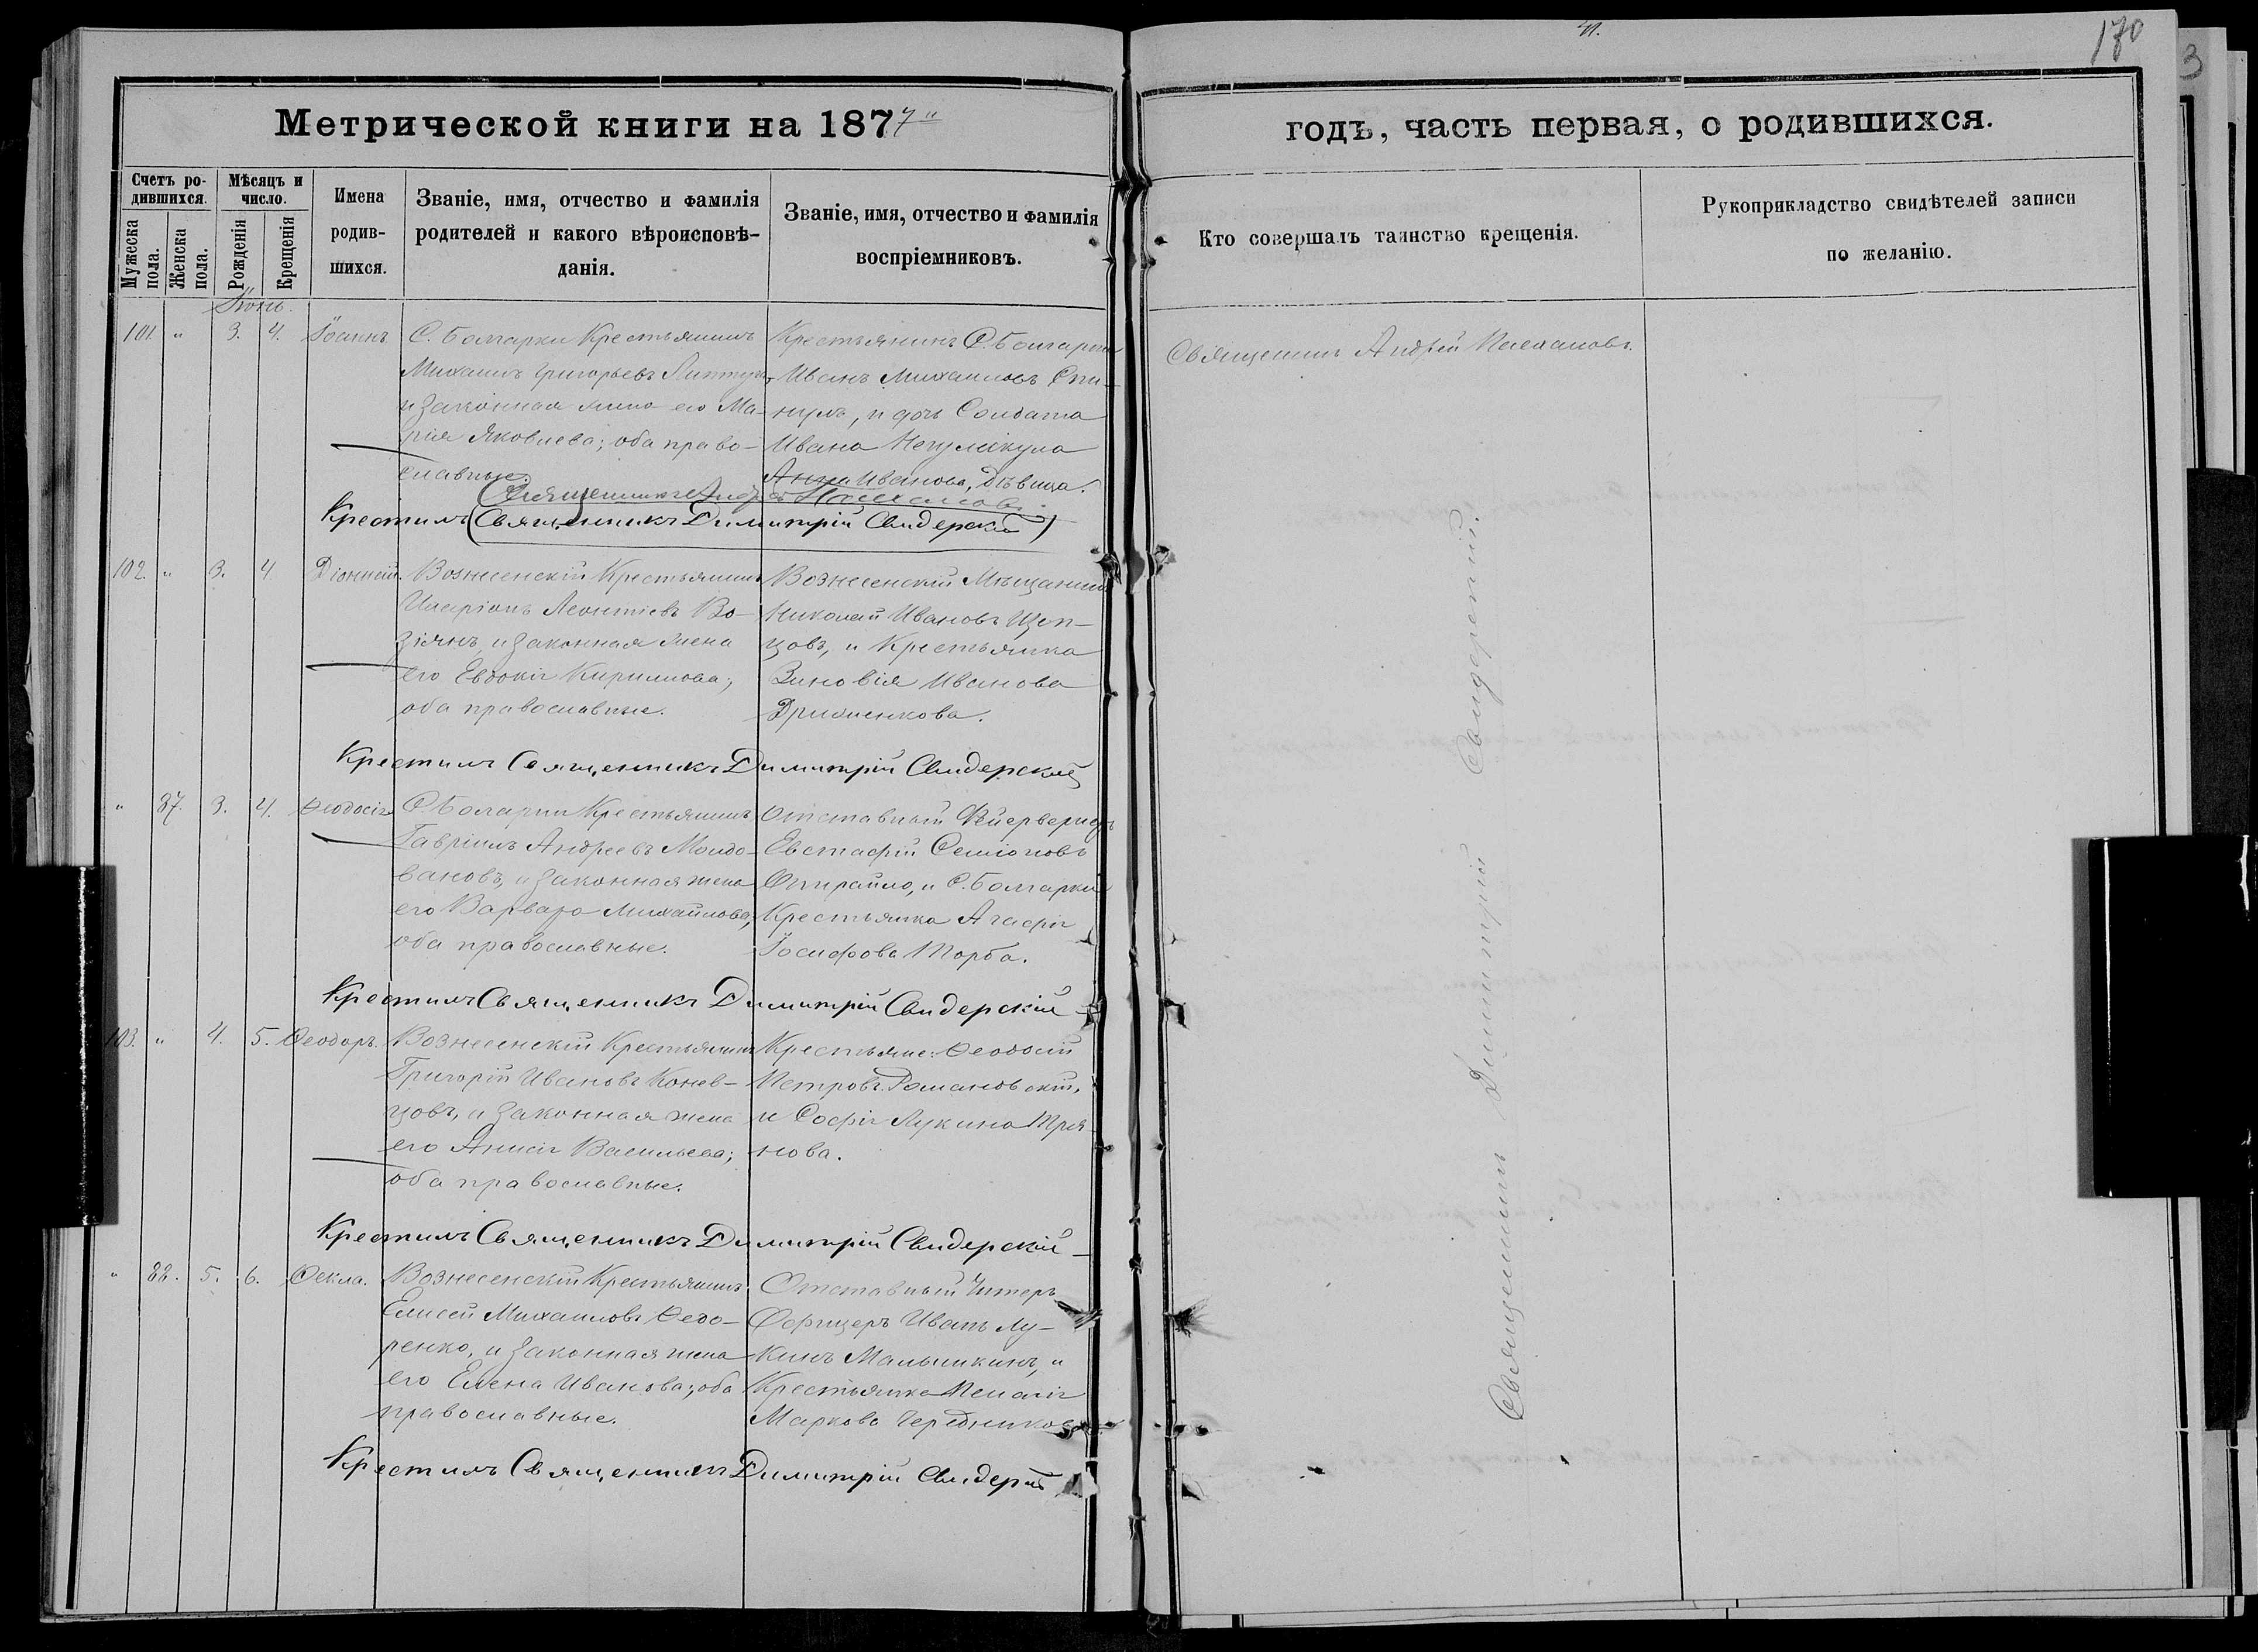 170
3
Метрической книги на 1877
годъ, часть первая, о родившихся.
Счетъ ро-
дившихся.
Мужеска
пола.
Женска
пола.
Мѣсяцъ и
число.
Рожденія
Крещенія
Имена
родив-
шихся.
Званіе, имя, отчество и фамилія
родителей и какого вѣроисповѣ-
данія.
Званіе, имя, отчество и фамилія
воспріемниковъ.
Кто совершалъ таинство крещенія.
Рукоприкладство свидѣтелей записи
по желанію.
101. " 3. 4. Іоаннъ.
С. Болгарки Крестьянинъ
Михаилъ Григорьевъ
и законная жена его Ма-
рія Яковлева; оба право-
славные.
Крестьянинъ С. Болгарки
Иванъ Михаиловъ Спи-
нулъ, и дочь Солдата
Ивана
Анна Иванова, Дѣвица.
Священникъ Андрей
Крестилъ (Священникъ Димитрій Свидерскій)
Священникъ Андрей
102. " 3. 4. Діонисій.
Вознесенскій Крестьянинъ
Иларіонъ Леонтіевъ Во-
зіянъ, и законная жена
его Евдокія Кирилова;
оба православные.
Вознесенскій Мѣщанинъ
Николай Ивановъ Щеп-
цовъ, и Крестьянка
Зиновія Иванова
Крестилъ Священникъ Димитрій Свидерскій
" 87. 3. 4. Ѳеодосія
С Болгарки Крестьянинъ
Гавріилъ Андреевъ Молдо-
вановъ, и законная жена
его Варвара Михайлова,
оба православные.
Отставный Фейерверкеръ
Евстафій Семіоновъ
и С. Болгарки
Крестьянка Агафія
Іосифова Торба.
Крестилъ Священникъ Димитрій Свидерскій
103. " 4. 5. Ѳеодоръ.
Вознесенскій Крестьянинъ
Григорій Ивановъ Конев-
цовъ, и законная жена
его Анисія Васильева;
оба православные.
Крестьяне: Ѳеодосій
Петровъ Романовскій,
и Софія Лукина Троя-
нова.
Крестилъ Священникъ Димитрій Свидерскій
" 88. 5. 6. Ѳекла.
Вознесенскій Крестьянинъ
Елисей Михаиловъ Ѳедо-
ренко, и законная жена
его Елена Иванова; оба
православные.
Отставный Унтеръ
Офицеръ Иванъ Лу-
кинъ Малышкинъ, и
Крестьянка Пелагія
Маркова Чередникова.
Крестилъ Священникъ Димитрій Свидерскій
Священникъ Димитрій Свидерскій.